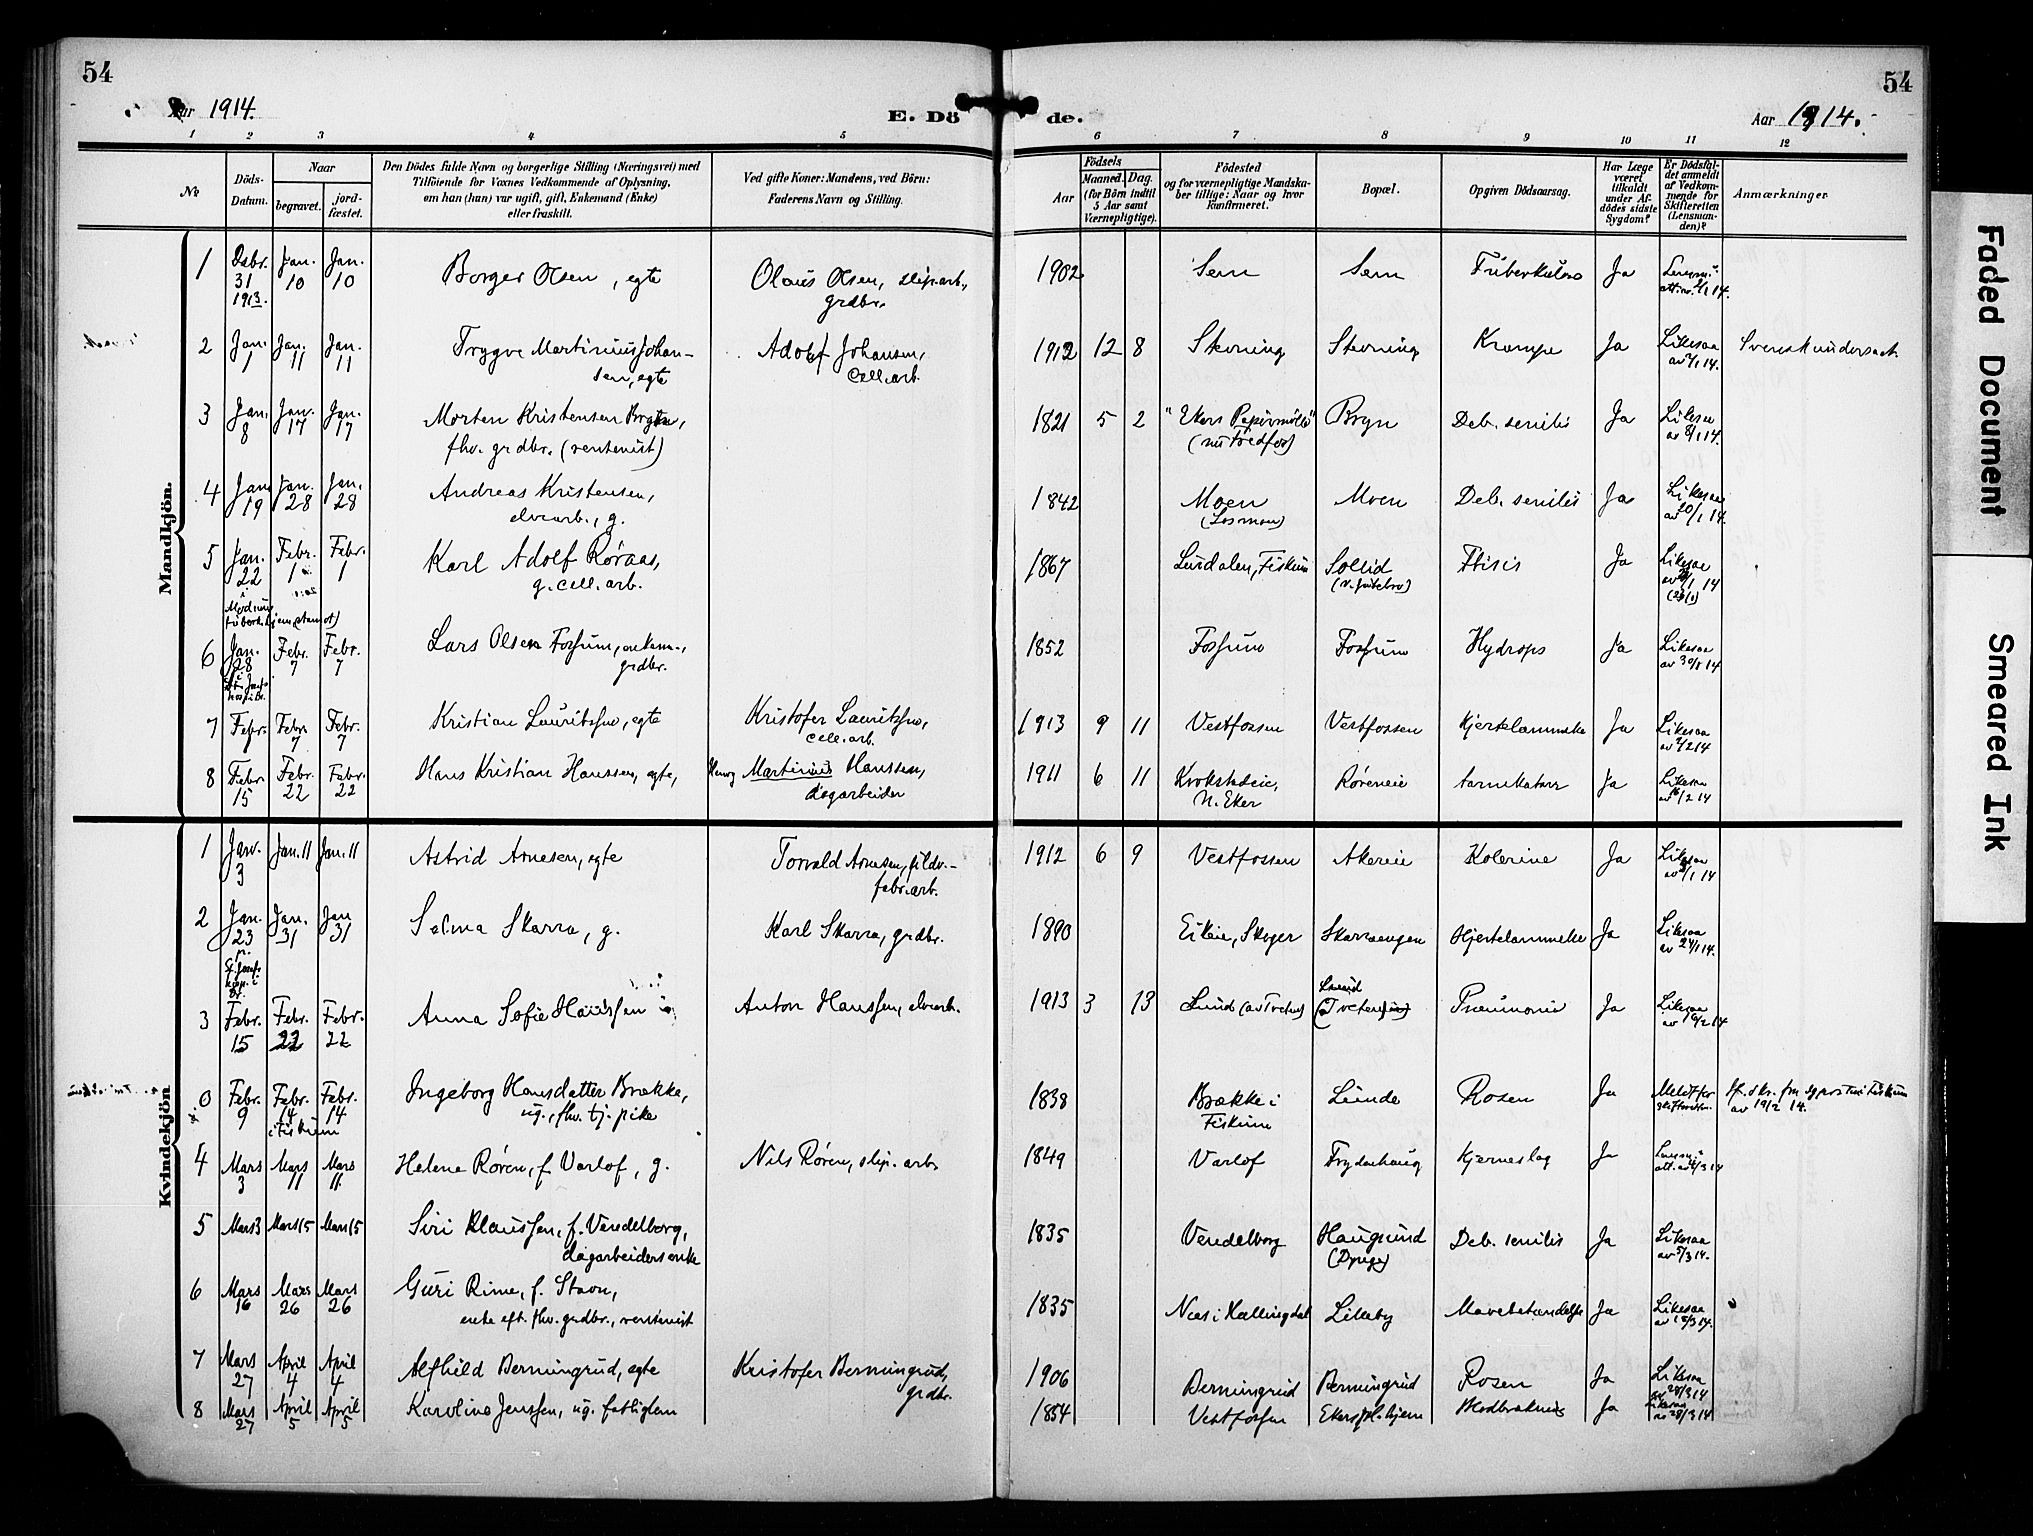 54
Aar 1914.
E. Dö de.
Aar 1914.
54
1 2 3 4 5 6 7 8 9 10 11 12
No
Döds-Datum.
Naar
begravet.
jord-fæstet.
Den Dödes fulde Navn og borgerlige Stilling (Næringsvei) med
Tilföiende for Voxnes Vedkommende af Oplysning,
om han (hun) var ugift, gift, Enkemand (Enke)
eller fraskilt.
Ved gifte Koner: Mandens, ved Börn:
Faderens Navn og Stilling.
Födsels
Aar
Maaned.
Dag.
(for Börn indtil
5 Aar samt
Værnepligtige).
Födested
og for værnepligtige Mandska-
ber tillige: Naar og hvor
konfirmeret.
Bopæl.
Opgiven Dödsaarsag.
Har Læge
været
tilkaldt
under Af-
dödes sidste
Sygdom?
Er Dödsfal-
det anmeldt
af Vedkom-
mende for
Skifteretten
(Lensman-
den)?
Anmærkninger
Mandkjön.
1 Dsbr. 31 1913. Jan. 10 Jan. 10 Borger Olsen, egte Olaus Olsen, slip.arb., grdbr. 1902 Sem Sem Tuberkulose Ja Lensm.s att. av 2/1 14.
2 Jan. 1 Jan. 11 Jan. 11 Trygve Martinius Johan-
sen, egte Adolf Johansen, Cell.arb. 1912 12 8 Skovning Krampe Ja Likesaa av 2/1 14. Svensk undersaat
3 Jan. 8 Jan. 17 Jan. 17 Morten Kristensen Bryn,
fhv. grdbr. (rentenist) 1821 5 2 "Ekers Papirmölle" (nu Fredfos) Bryn Deb. senilis Ja Likesaa av 8/1 14.
4 Jan. 19 Jan. 28 Jan. 28 Andreas Kristensen,
elvearb., g. 1842 Moen (Losmoen) Moen Deb. senilis Ja Likesaa av 20/1 14.
5 Jan. 22 Febr. 1 Febr. 1 Karl Adolf Røraas,
g. cell. arb. 1867 Fiskum Sollid Ftisis Ja Likesaa
6 Jan. 28 Febr. 7 Febr. 7 Lars Olsen Fossum, enkem., grdbr. 1852 Fossum Fossum Hydrops Ja Likesaa av 30/1 14
7 Febr. Febr. 7 Febr. 7 Kristian Lauritzsen, egte Kristofer Lauritzsen, cell. arb. 1913 9 11 Vestfossen Vestfossen Kjertelammelse Ja Likesaa av 2/2 14
8 Febr. 15 Febr. 22 Febr. 22 Hans Kristian Hanssen, egte, Martinius Hanssen, dagarbeider 1911 6 11 Krokstadeie, N. Eker Røreneie tarmkatarr Ja Likesaa av 16/2 14
Kvindekjön
1 Jan. 3 Jan. 11 Jan. 11 Astrid Arnesen, egte Torvald Arnesen, 
fabr.arb. 1912 6 9 Vestfossen Akereie Kolerine Ja Likesaa
2 Jan. 23 Jan. 31 Jan 31 Selma Skarra, g. Karl Skarra, grdbr. 1890 Eikeie, Skoger Skarraengen Hjertelammelse Ja Likesaa av 24/1 14.
3 Febr. 15 Febr. 22 Febr. 22 Anna Sofie Hanssen Anton Hanssen, elvearb. 1913 3 13 Lund (av Tveten) Lund Pneumonie Ja Likesaa av 16/2 14
0 Febr. 9 Febr. 14 i Fiskum Febr. 14 Ingeborg Hansdatter Brække,
ug., fhv. tj. pike 1838 Brække i Fiskum Lunde Rosen Ja Meldt for skifteretten. av 19/2 14.
4 Mars 3 Mars 11 Mars 11 Helene Røren, f. Varlof, g. Nils Røren, slip. arb. 1849 Varlof Frydenhaug Hjerneslag Ja
5 Mars 3 Mars 15 Mars 15 Siri Klaussen, f. Vendelborg,
dagarbeiders enke 1835 Vendelborg Haugsund Deb. senilis Ja Likesaa av 5/3 14.
6 Mars 16 Mars 26 Mars 26 Guri Rime, f. Stavn,
enke eft. fhv. grdbr., rentenist 1835 Næs i Hallingdal Lilleby Mavebetændelse Ja Likesaa
7 Mars 27 April 4 April 4 Alfhild Berningrud, egte Kristofer Berningrud, grdbr. 1906 Berningrud Berningrud Rosen Ja Likesaa av 28/3 14
8 Mars 27 April 5 April 5 Karoline Jenssen, ug. fattiglem 1854 Vestfossen Ekers pl.hjem Ja Likesaa av 28/3 14
Faded Document
Smeared Ink